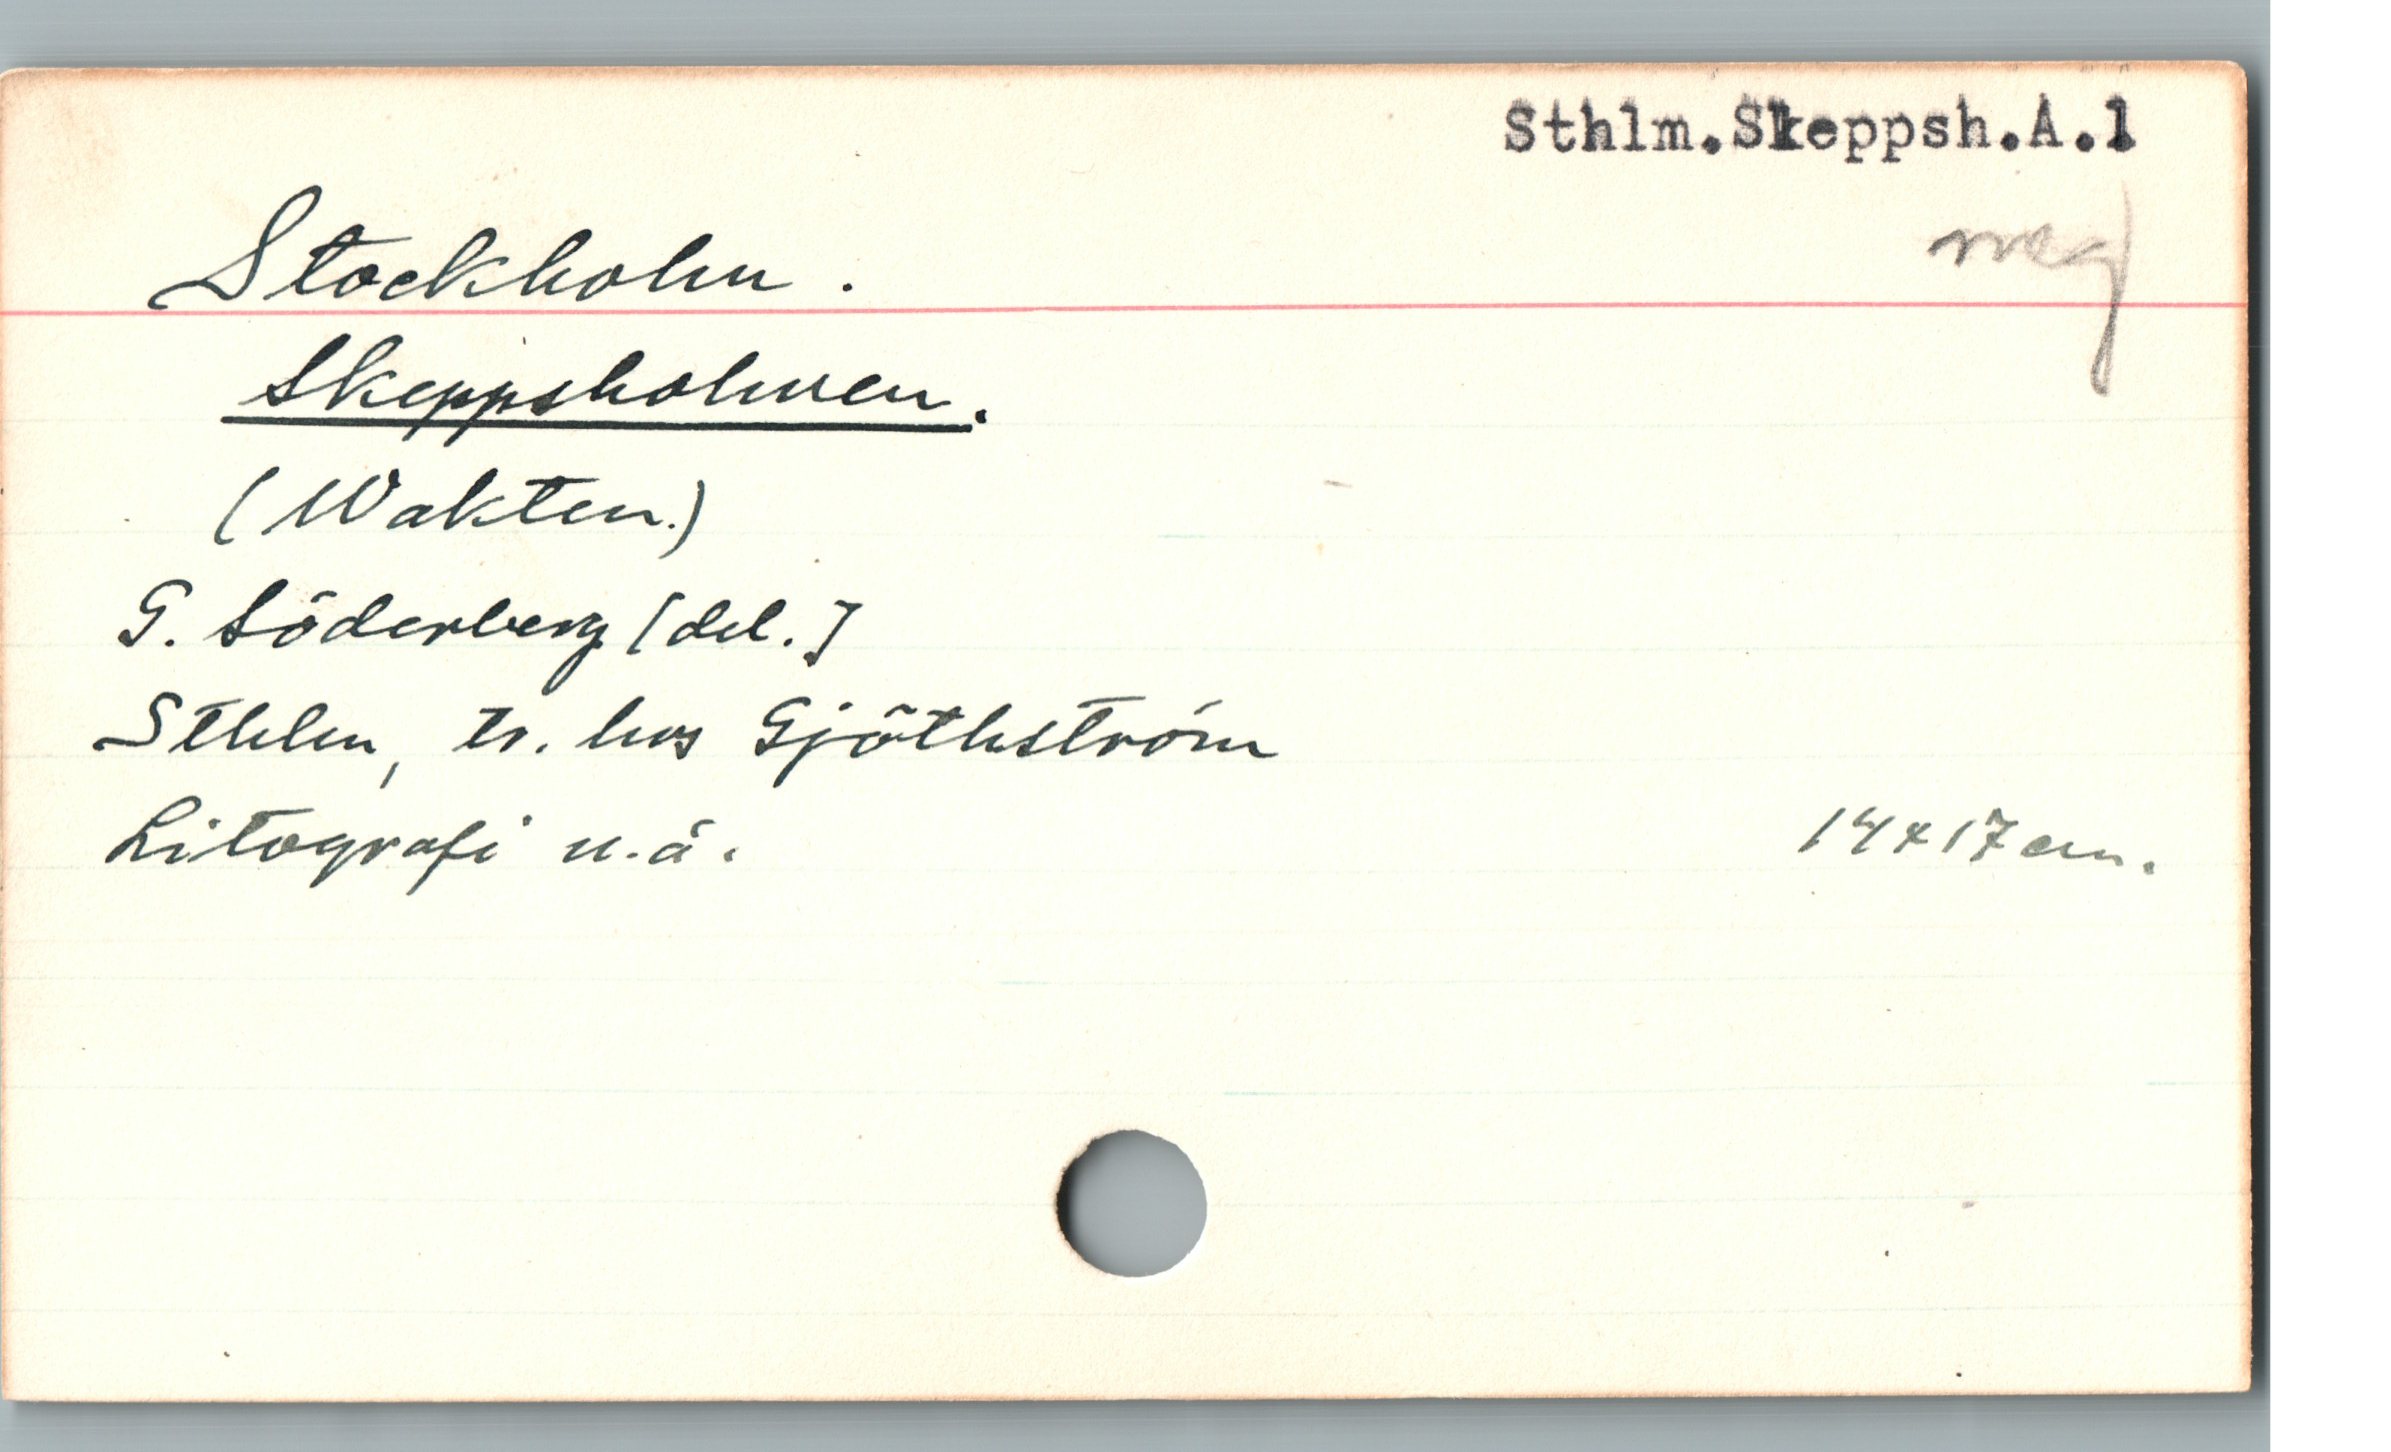 Sthlm.Skeppsh.A.1
neg
Stockholm.
Skeppsholmen.
(Wakten.)
G. Söderberg [del.]
Sthlm, tr. hos Gjöthström
Litografi u.å.
14x17 cm.